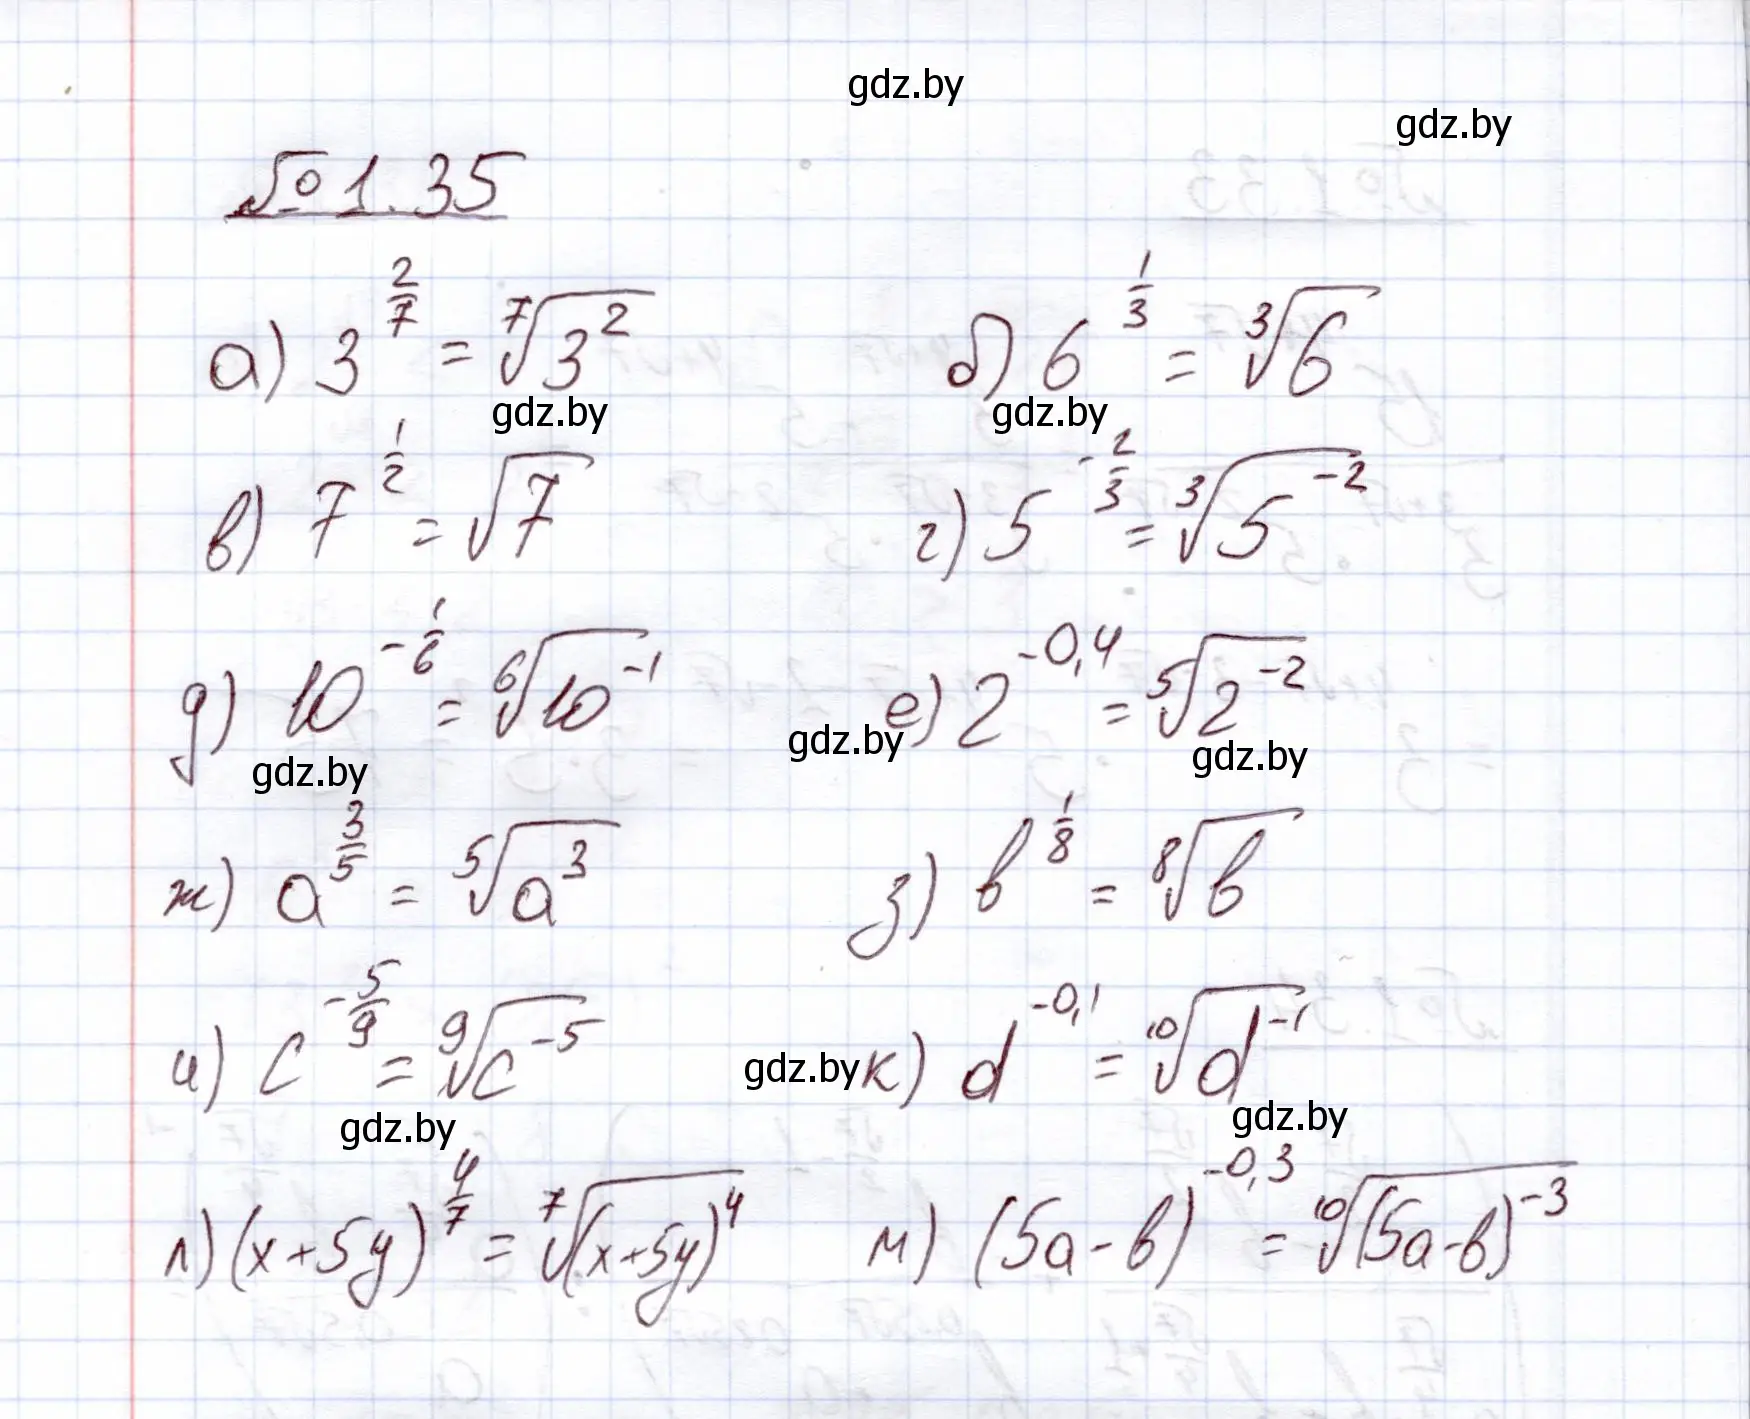 gdz.by
gdz.by
№1.35
а) 3^(2/7) = ⁷√(3²) б) 6^(1/3) = ³√6
gdz.by gdz.by
в) 7^(1/2) = √7 г) 5^(-2/3) = ³√(5^(-2))
д) 10^(-1/6) = ⁶√(10^(-1)) е) 2^(-0,4) = ⁵√(2^(-2))
gdz.by gdz.by gdz.by
ж) a^(3/5) = ⁵√(a³) з) b^(1/8) = ⁸√b
и) c^(-5/9) = ⁹√(c^(-5)) gdz.by к) d^(-0,1) = ¹⁰√(d^(-1))
gdz.by gdz.by
л) (x+5y)^(4/7) = ⁷√((x+5y)⁴) м) (5a-b)^(-0,3) = ¹⁰√((5a-b)^(-3))